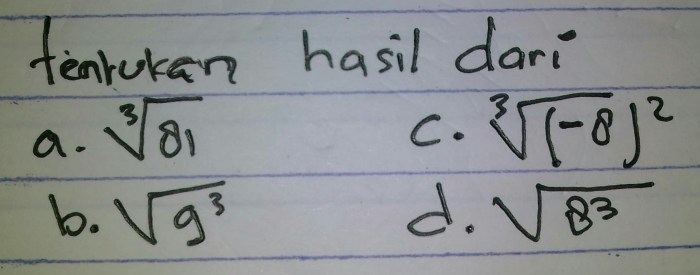 tentukan hasil dari
a. ³√81 c. ³√(-8)²
b. √9³ d. √8³